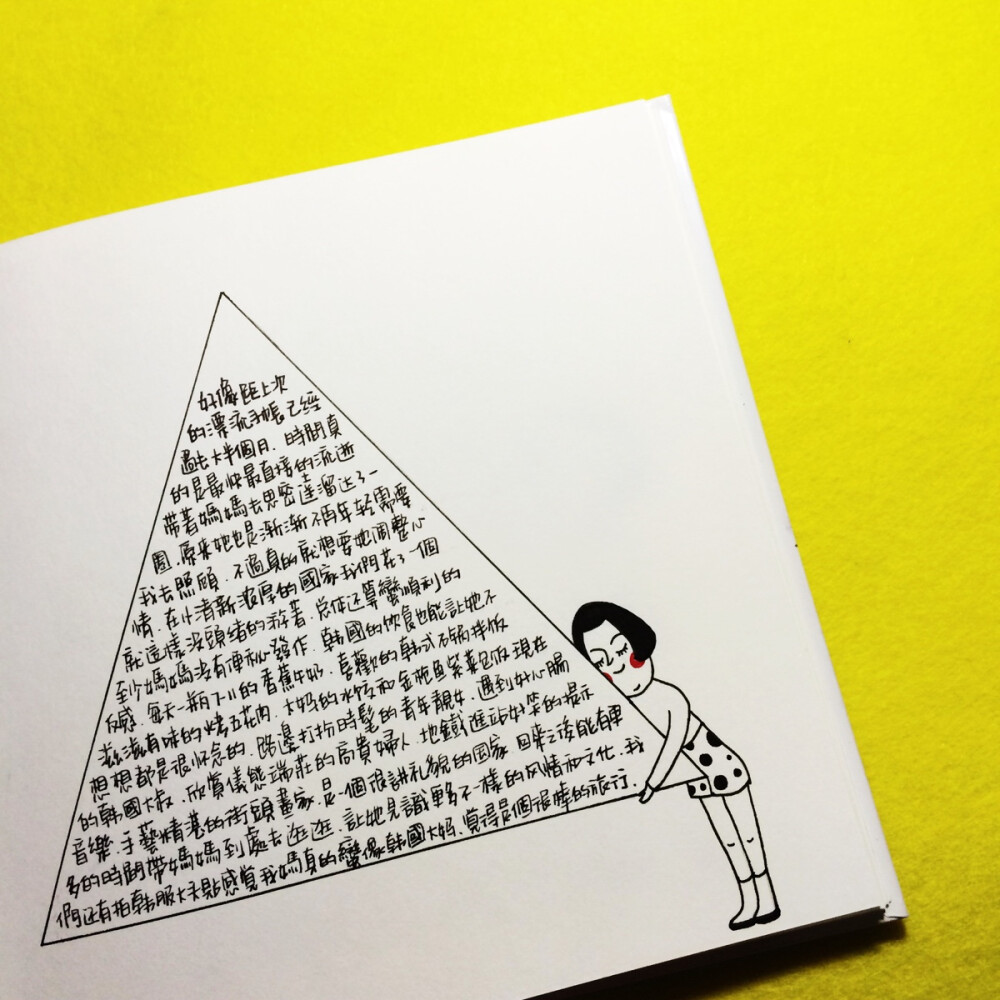 好像距上次
的漂流手帳已經
過去大半個月．時間真
的是最快最直接的流逝
帶著媽媽去思密達溜达了一
圈．原來她也是漸漸不再年轻需要
我去照顧．不過真的就想要她調整心
情．在小清新濃厚的國家我們花了一個
就這樣沒頭緒的游著．总体还算蠻順利的
至少媽媽沒有便秘發作．韓國的饮食也能讓她不
反感．每天一瓶下肚的香蕉牛奶．喜歡的韩式石锅拌饭
滋滋有味的烤五花肉．大妈的水饺和金枪鱼紫菜包饭現在
想想都是很怀念的．路邊打扮時髦的青年靓女．遇到好心腸
的韓國大叔．欣賞儀態端莊的高貴婦人．地鐵進站好笑的提示
音樂．手藝精湛的街頭畫家．是一個很講礼貌的国家．回來之後能有更
多的時間帶媽媽到處去逛逛．让她見識夠多不一樣的风情和文化．我
們还有拍韩服大头贴感觉我妈真的蠻像韩國大妈．覚得是個很棒的旅行．